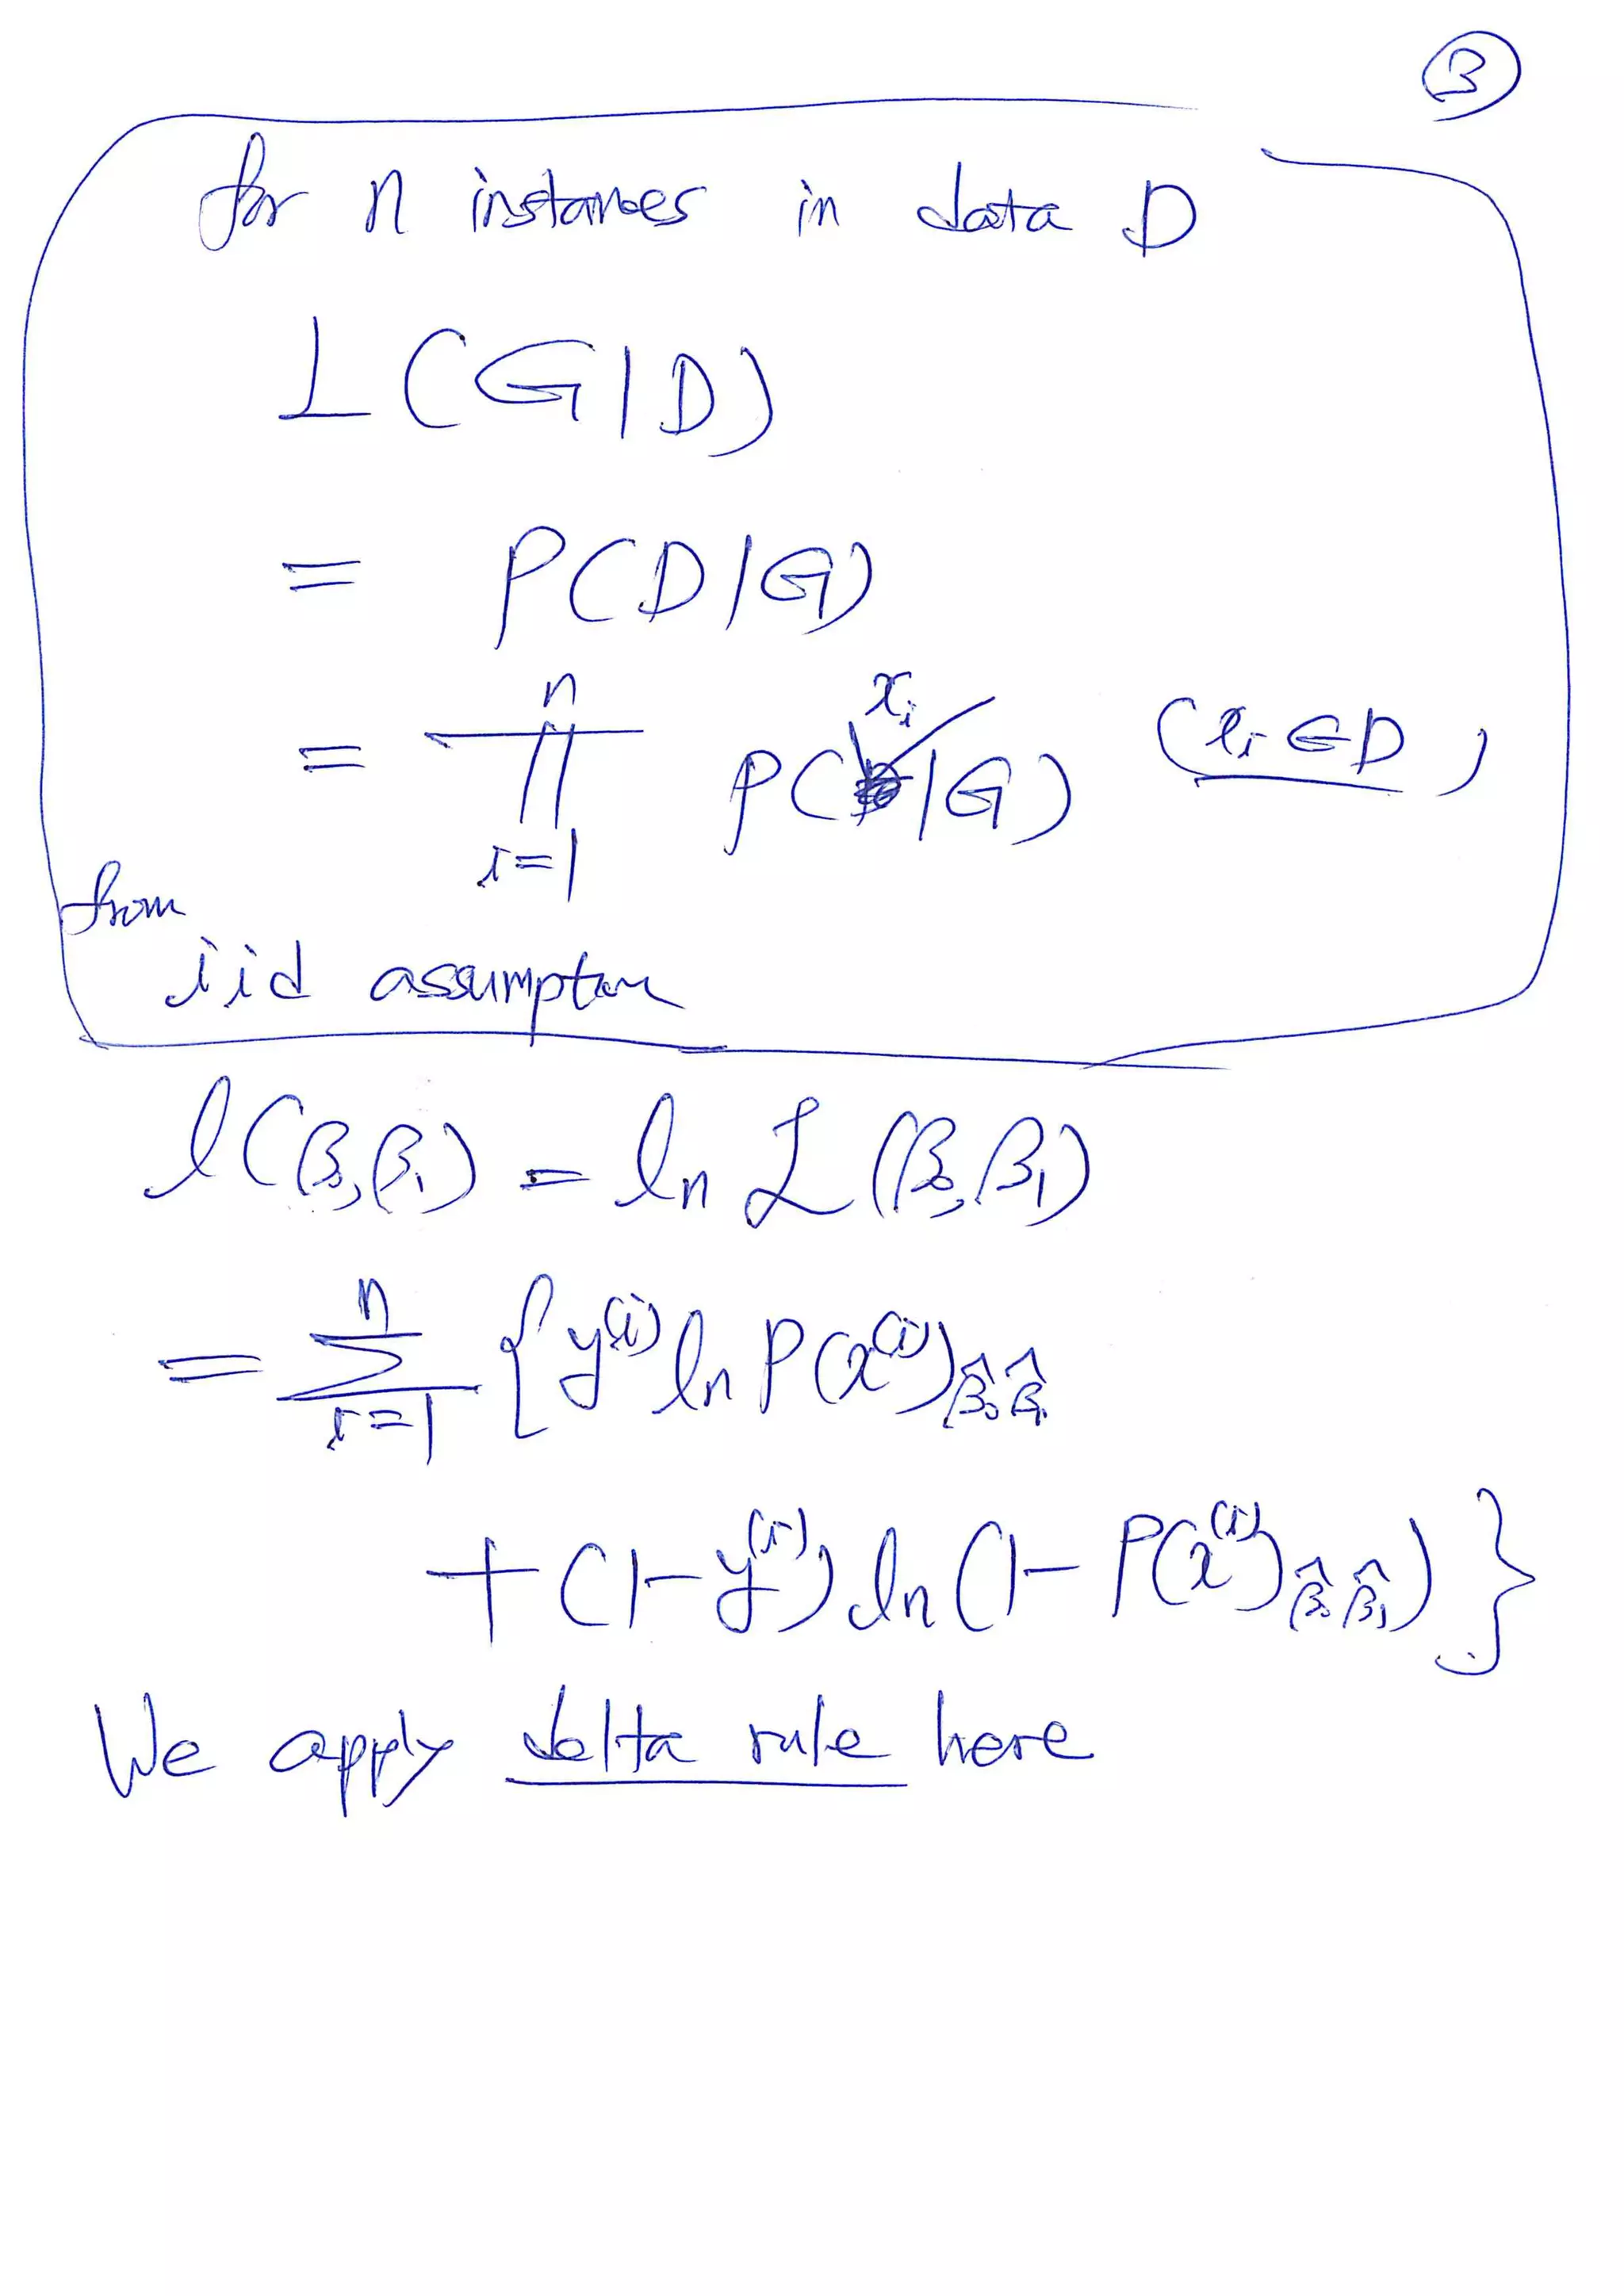 ③
for n instances in data D
L(G|D)
= P(D|G)
= ∏_{i=1}^{n} P(x_i|G) (x_i ∈ D)
from
iid assumption
l(β₀,β₁) = ln L(β₀,β₁)
= Σ_{i=1}^{n} { y^{(i)} ln P(x^{(i)})_{β̂₀ β̂₁}
+ (1-y^{(i)}) ln (1- P(x^{(i)})_{β̂₀ β̂₁}) }
We apply delta rule here